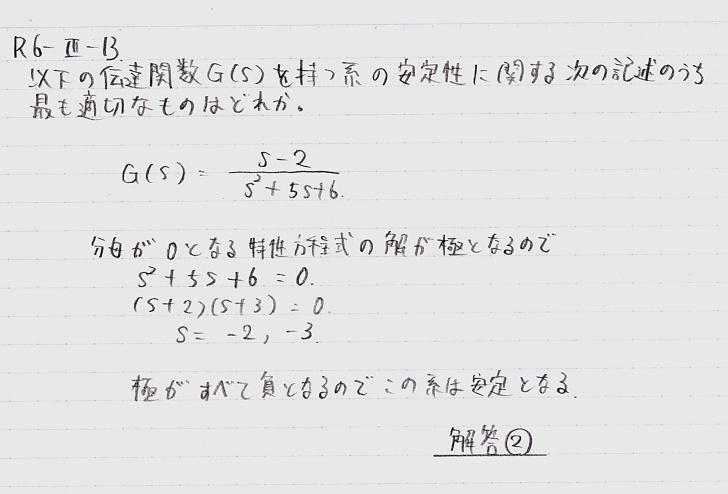 R6-Ⅲ-13
以下の伝達関数G(s)を持つ系の安定性に関する次の記述のうち
最も適切なものはどれか。
G(s) = (s-2)/(s²+5s+6)
分母が0となる特性方程式の解が極となるので
s²+5s+6=0.
(s+2)(s+3)=0
s= -2, -3.
極がすべて負となるのでこの系は安定となる.
解答②